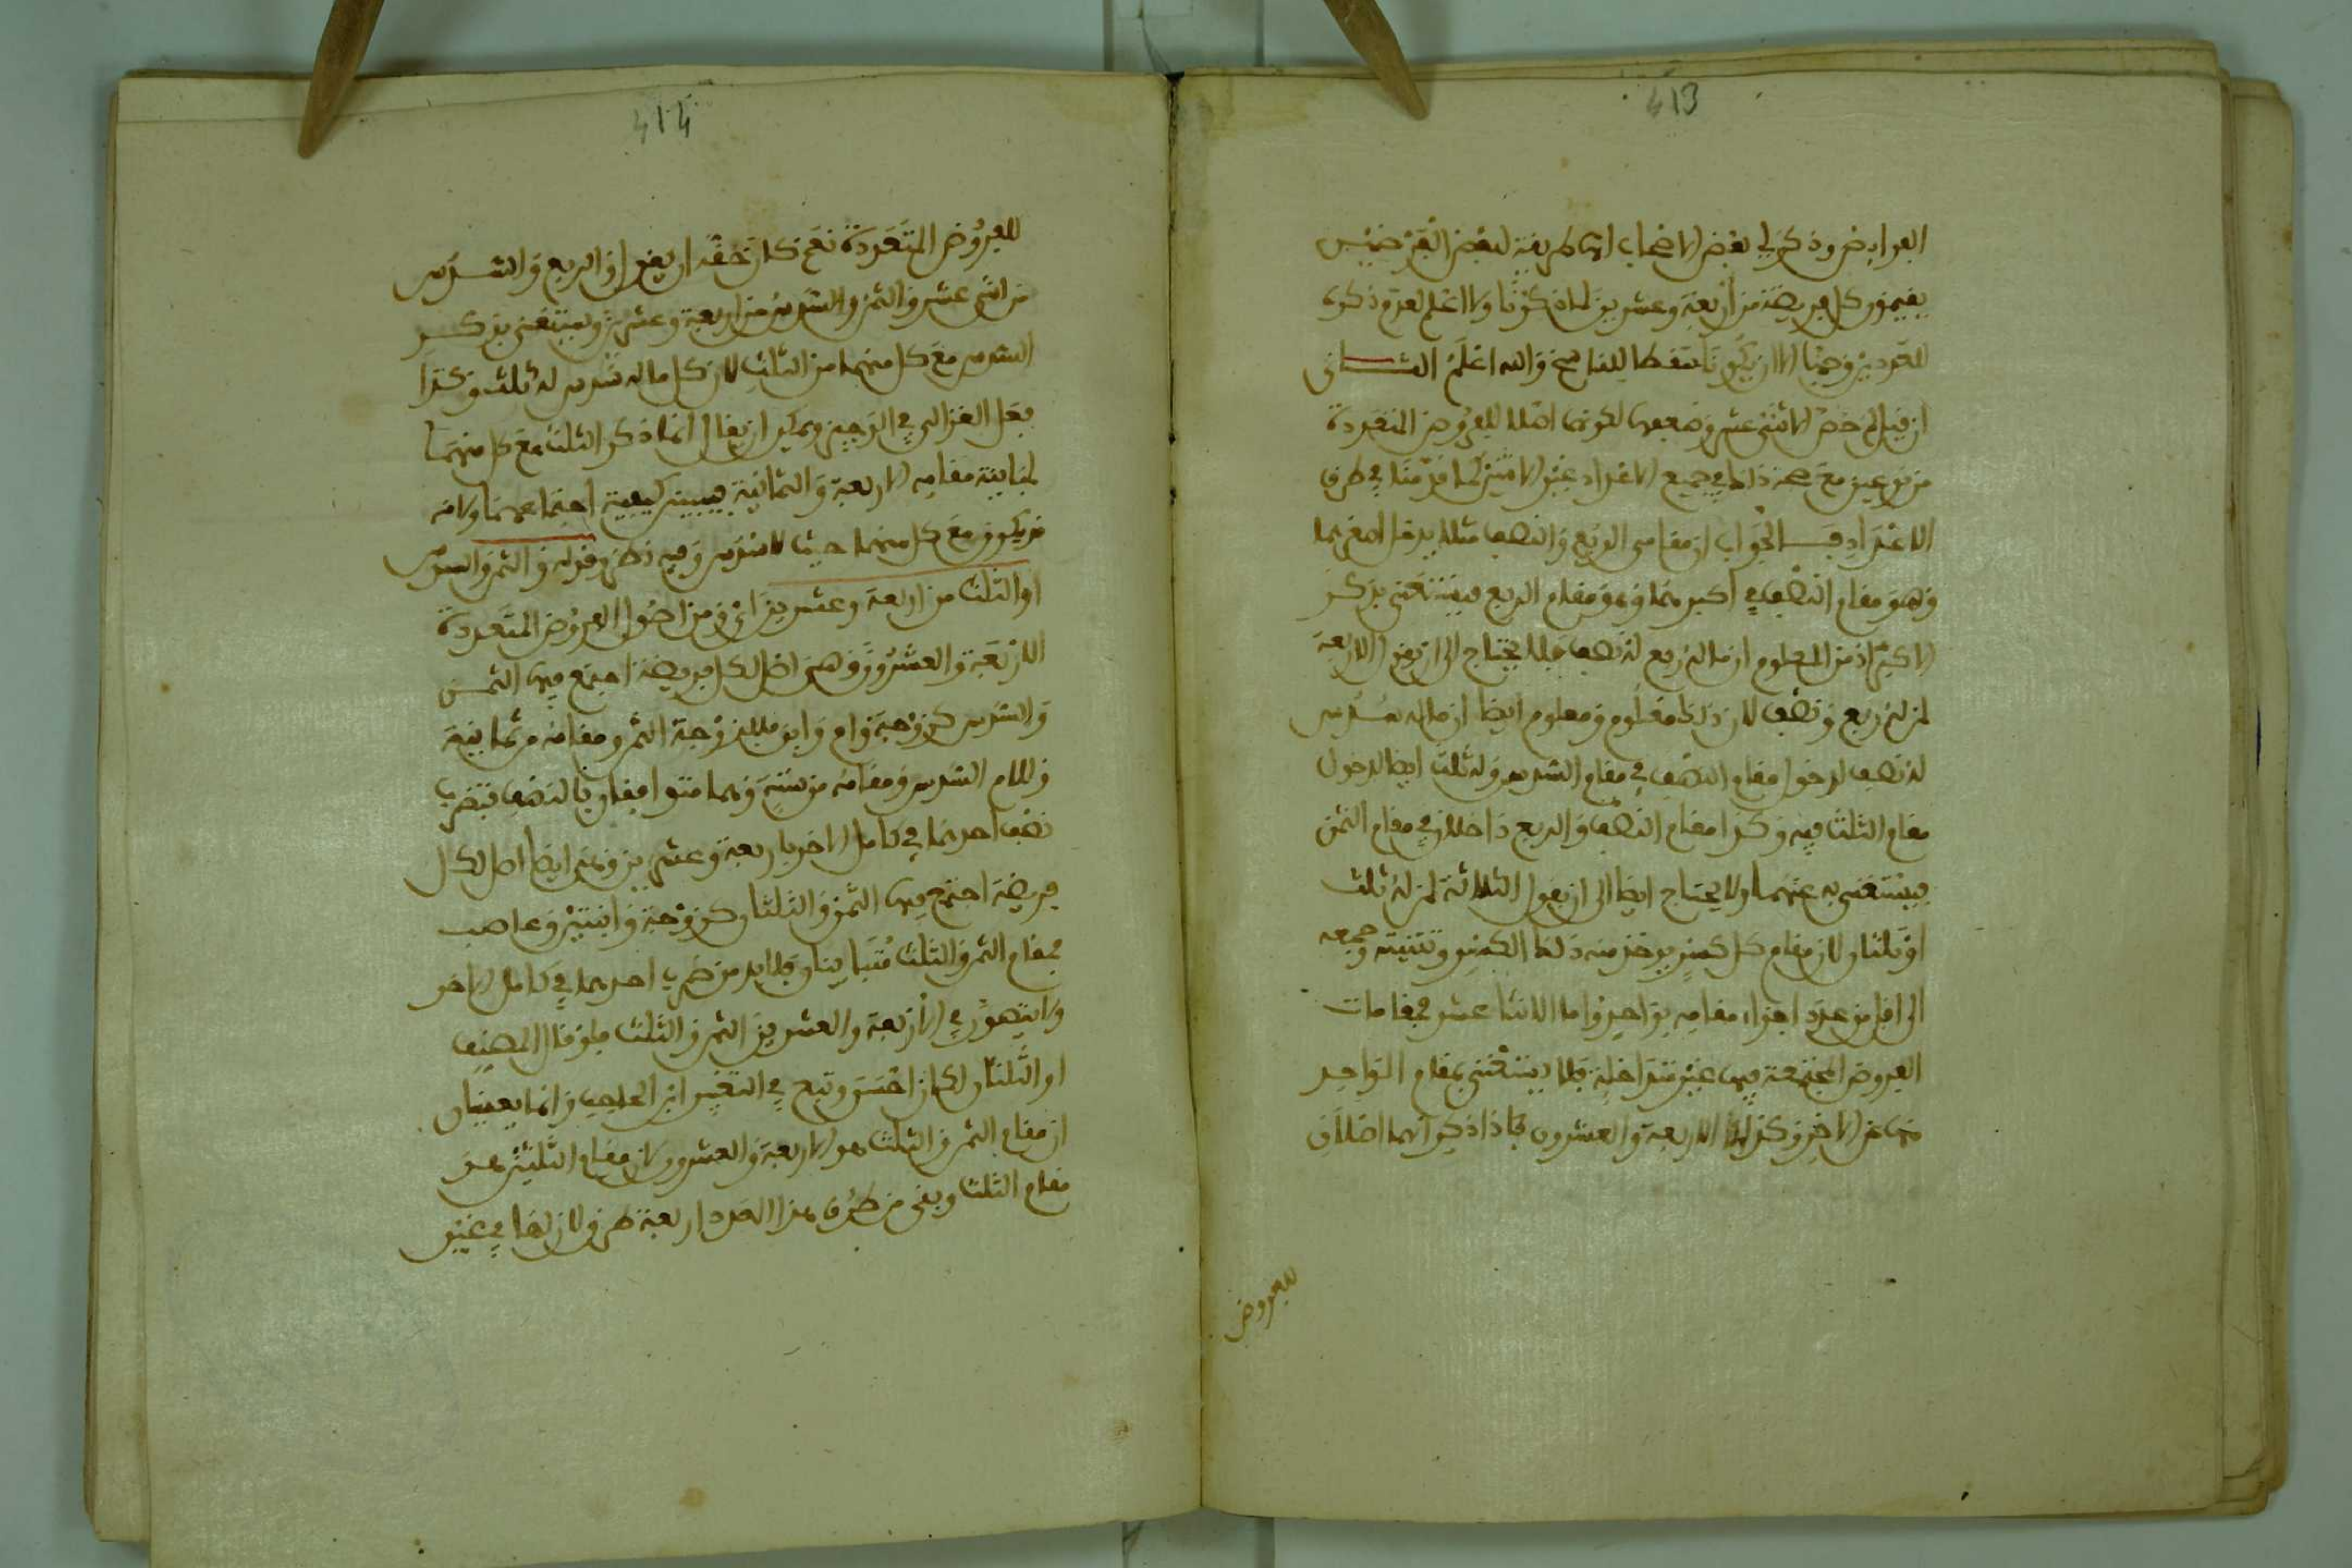 413
الفرايض وذكر لي بعض الاصحاب انها طريقة لبعض الفرضيين
يقيمون كل فريضة من أربعة وعشرين لما ذكرنا ولا اعلم لعدم ذكره
للعددين وجها الا ان يكونا سقطا للناسخ والله اعلم الثاني
ان قيل لم خص الاثني عشر وضعفها لكونها اصلا للفروض المتعددة
من نوعين مع صحة ذلك في جميع الاعداد غير الاثنين كما قدمنا في طرق
الاعداد فالجواب ان مقامي الربع والنصف مثلا يدخل اصغرهما
وهو مقام النصف في اكبرهما وهو مقام الربع فيستغنى بذكر
الاكبر اذ من المعلوم ان ما له ربع له نصف فلا يحتاج الى ان يقول الاربعة
لمن له ربع ونصف لان ذلك معلوم ومعلوم ايضا ان ما له سدس
له نصف لدخول مقام النصف في مقام السدس وله ثلث ايضا لدخول
مقام الثلث فيه وكذا مقام النصف والربع داخلان في مقام الثمن
فيستغنى به عنهما ولا يحتاج ايضا الى ان يقول الثلاثة لمن له ثلث
او ثلثان لان مقام كل كسر يوخذ منه ذلك الكسر وتثنيته وجمعه
الى اقل من عدد اجزاء مقامه بواحد واما الاثنا عشر فمقامات
الفروض المجتمعة فيها غير متداخلة فلا يستغنى بمقام الواحد
منها عن الاخر وكذلك الاربعة والعشرون فلذا ذكر انهما اصلان
للفروض
414
للفروض المتعددة نعم كان حقه ان يقول او الربع والسدس
من اثني عشر والثمن والسدس من اربعة وعشرين ويستغنى بذكر
السدس مع كل منهما من الثلث لان كل ما له سدس له ثلث وكذا
فعل الغزالي في الوجيز ويمكن ان يقال انما ذكر الثلث مع كل منهما
لمباينة مقامه الاربعة والثمانية فيبين كيفية اجتماعهما ولانه
قد يكون مع كل منهما حيث لا سدس وفيه نظر وقوله والثمن والسدس
او الثلث من اربعة وعشرين اي ومن اصول الفروض المتعددة
الاربعة والعشرون وهي اصل لكل فريضة اجتمع فيها الثمن
والسدس كزوجة وام وابن فللزوجة الثمن ومقامه من ثمانية
وللام السدس ومقامه من ستة وهما متوافقان بالنصف فتضرب
نصف احدهما في كامل الاخر باربعة وعشرين وهي ايضا اصل لكل
فريضة اجتمع فيها الثمن والثلثان كزوجة وابنتين وعاصب
فمقام الثمن والثلث متباينان فلا بد من ضرب احدهما في كامل الاخر
ولا يتصور في الاربعة والعشرين الثمن والثلث فلو قال المصنف
او الثلثان لكان احسن وتبع في التعبير ابن الحاجب وانما يعنيان
ان مقام الثمن والثلث هو الاربعة والعشرون ولان مقام الثلثين هو
مقام الثلث وبقي من طرق هذا العدد اربعة طرق لان لها في غير